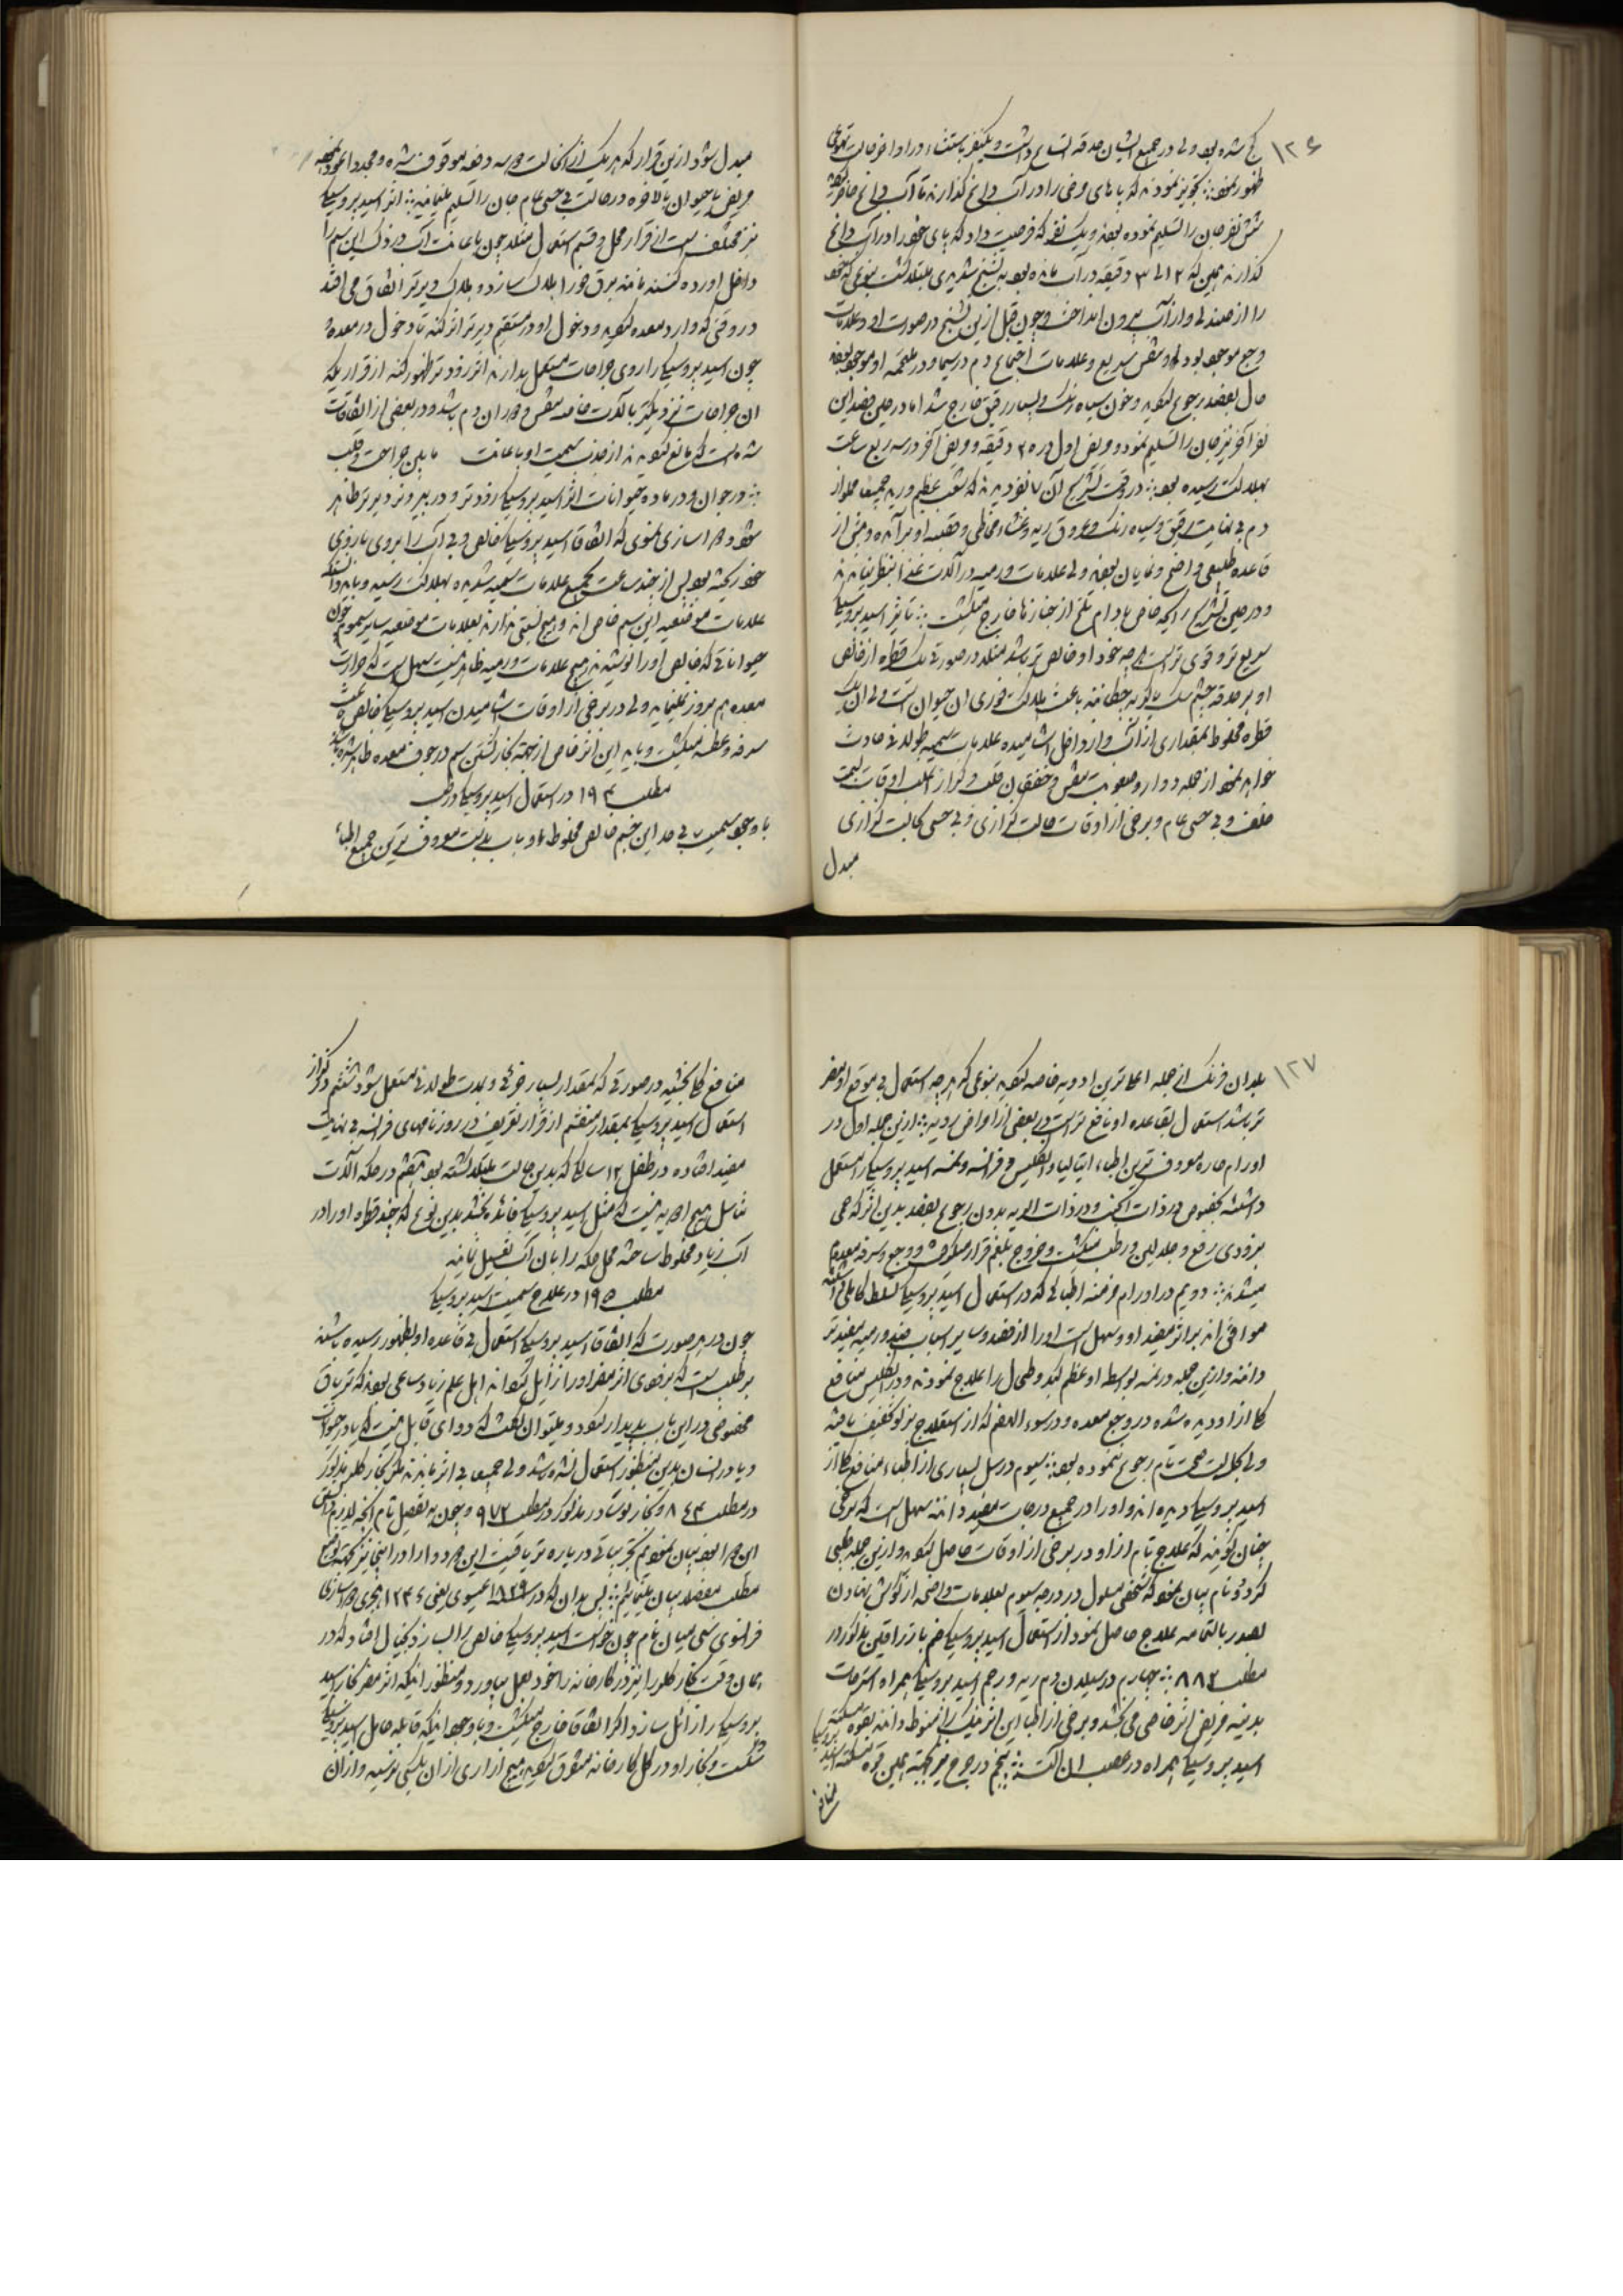 ۱۲۶
کج شده بود ولی در جمیع ایشان حدقه اتساع داشت و یکنفر باستثناء در او اخر حالت تهوع
ظهور نمود تجویز نمودند که پاهای مرضی را در آب داغ گذارند تا آب داغ حاضر
شش نفر جان را تسلیم نموده بودند و یک نفر که فرصت داد که پای خود را در آب داغ
گذارند همین که ۲ الی ۳ دقیقه در آب مانده بود به تشنج شدیدی مبتلا گشت بنوعی که خود
را از صندلی و از آب بیرون انداخت و چون قبل ازین تشنج در صورت او علامات
وجع موجود بود و تنفس سریع و علامات اجتماع دم در سیما و در ملتحمه او موجود بود
حال بفصد رجوع نمودند و خون سیاه رنگ و بسیار رقیق خارج شد اما در حین فصد این
نفر آخر نیز جان را تسلیم نمود و مریض اول در ۲۰ دقیقه و مریض آخر در سه ربع ساعت
بهلاکت رسیده بود در وقت تشریح آن ۷ نفر دیدند که شعب عظیم و ریه جمیعا مملو از
دم بی نهایت رقیق و سیاه رنگ و عروق ریه و غشاء مخاطی و قصبه او برآمده و
قاعده طبیعی واضح و نمایان بودند ولی علامات ورمیه در آلات غذا بنظر نیامدند
و در حین تشریح رایحه خاص بادام تلخ از جنازها خارج میگشت تاثیر اسید پروسیک
سریع تر و قوی تر است هر چه خود او خالص تر باشد مثلا در صورتی که یک قطره از خالص
او بر حدقه چشم سگ یا گربه چکانند باعث هلاکت فوری ان حیوان است ولی ان یک
قطره مخلوط بمقداری از آب و از داخل اشامیده علامات سمیه طولانی حادث
خواهد نمود از جمله دوار و صعوبت تنفس و خفقان قلب و کزاز اغلب اوقات بسمت
خلف و بی حسی عام و برخی از اوقات حالت کزازی و بی حسی بحالت کزازی
مبدل
مبدل شود ازین قرار که هر یک ازان حالت دو سه دفعه موقوف شده و مجددا عود نموده
مریض یا حیوان بالاخره در حالت بی حسی عام جان را تسلیم مینمایند اثر اسید پروسیک
نیز مختلف است از قرار محل و قسم استعمال مثلا چون باعانت آب دزدک این سم را
داخل اورده کنند مانند برق فورا هلاک سازد و هلاک دیرتر اتفاق می افتد
در وقتی که وارد معده گویند و دخول او در مستقیم دیرتر اثر کند تا دخول در معده
چون اسید پروسیک را روی جراحات مستعمل بدارند اثر زودتر ظهور کند از قرار یکه
ان جراحات نزدیکتر بآلات خاصه تنفس و دوران دم باشد و در بعضی از اتفاقات
شده است که مانع گویند از جذب سمیت او باعانت مابین جراحت و قلب
در جوان و در ماده حیوانات اثر اسید پروسیک زودتر و در پیر و نر دیرتر ظاهر
شود دوا سازی نمسوی که اتفاقا اسید پروسیک خالص و بی آب را بر روی بازوی
خود ریخته بود پس از چند ساعت بجمیع علامات سمیه شدیده بهلاکت رسید و باید دانست که
علامات موضعیه این سم خاص اند و هیچ نسبتی ندارند بعلامات موضعیه سایر سموم چون
حیواناتی که خالص او را نوشیده اند هیچ علامات ورمیه ظاهر نیست سهل است که حرارت
معده هم بروز نمینماید ولی در برخی از اوقات اشامیدن اسید پروسیک خالص باعث
سرفه و عطسه میگشت و باید این اثر خاص از جهة بخار گشتن سم در جوف معده ظاهر شده باشد
مطلب ۱۹۴ در استعمال اسید پروسیک در طب
با وجود سمیت بی حد این جسم خالص مخلوط او باب بدایت معروف ترین جمیع اطباء
۱۲۷
بلدان فرنگ از جمله اعلا ترین ادویه خاصه گویند بنوعی که هر چه استعمال بی موقع او مضر
تر باشد استعمال بقاعده او نافع تر است در بعضی از امراض ردیه ازین جمله اول در
اورام حاره معروف ترین اطباء ایتالیا و انگلیس و فرانسه و نمسه اسید پروسیک را مستعمل
داشتند بخصوص در ذات الجنب و در ذات الریه بدون رجوع بفصد بدین اثر که حمی
بزودی رفع و جلد لین و رطب میگشت و خروج بلغم قرار میگرفت و وجع و سرفه معدوم
میشدند دویم در اورام مزمنه اطبائی که در استعمال اسید پروسیک تسلط کاملی داشتند
موافق اند بر اثر مفید او و سهل است او را از فصد و سایر اسباب ضد ورمیه مفید تر
دانند و ازین جمله در نمسه بواسطه او عظم کبد و طحال را علاج نمودند و در انگلیس منافع
کلی از او دیده شده در وجع معده و در سوء الهضم که از استعلاج مزبور تخفیف یافته
ولی بحالت صحت تام رجوع ننموده بود سیوم در سل بسیاری از اطباء منافع کلی از
اسید پروسیک دیده اند و او را در جمیع درجات مفید دانند سهل است که برخی
چنان گویند که علاج تام از او در برخی از اوقات حاصل گوید و ازین جمله طبی
نام بیان نمود که شخصی مسلول در درجه سیوم بعلامات واضحه از گوش نهادن
بصدر بالتمامه علاج حاصل نمود از استعمال اسید پروسیک ضم با تراقین مذکور در
مطلب ۸۸۲ چهارم در سیلان دم ریه و رحم اسید پروسیک همراه استرمات
بدنیه مریض اثر خاصی می بخشد و برخی از اطبا این اثر نیک را منوط دانند بقوه مسکنه
اسید پروسیک همراه در عصب ان آلت پنجم در جرع میر بجهة همین قوه مسکنه اسید پروسیک
منافع
منافع کلی بخشید در صورتی که بمقدار بسیار جزئی و بمدت طولانی مستعمل شود ششم در کزاز
استعمال اسید پروسیک بمقدار منقسم از قرار تعریف در روز نامهای فرانسه بی نهایت
مفید افتاده در طفل ۱۲ ساله که بدین حالت مبتلا گشته بود هفتم در حکه آلات
تناسل هیچ ادویه نیست که مثل اسید پروسیک فائده بخشد بدین نوع که چند قطره او را در
آب زیاد مخلوط ساخته محل حکه را بان آب تغسیل نمایند
مطلب ۱۹۵ در علاج سمیت اسید پروسیک
چون در هر صورت که اتفاقا اسید پروسیک استعمال بی قاعده او بظهور رسیده باشد
بر طبیب است که بزودی اثر مضر او را زائل گرداند اهل علم زیاد ساعی بودند که تریاق
مخصوصی در این باب پدیدار گردد و میتوان گفت که دوای قابل نیست که یا در حیوانات
و یا در انسان بدین منظور استعمال نشده باشد ولی جمیعا بی اثر ماندند مگر بخار کلر مذکور
در مطلب ۸۴۴ و بخار نوشادر مذکور در مطلب ۹۷۲ و چون به تفصیل تام آنچه لازم دانستن
این دو را بود بیان نمودیم تجربیاتی درباره تریاقیت این دو دوا را در اینجا نیز بجهة توضیح
مطلب مفصلا بیان مینمائیم پس بدان که در سنه ۱۸۲۹ عیسوی یعنی ۱۲۴۶ هجری دوا سازی
فرانسوی سیمیان نام چون خواست اسید پروسیک خالص را بسازد بخیال افتاد که در
همان وقت بخار کلر را نیز در کارخانه خود بعمل بیاورد و بمنظور اینکه اثر مضر بخار اسید
پروسیک را زائل سازد اگر اتفاقا خارج میگشت و با وجود اینکه قابله حامل اسید پروسیک
شکست و بخار او در کل کارخانه متفرق گردید هیچ ازاری ازان بکسی نرسید و ازان